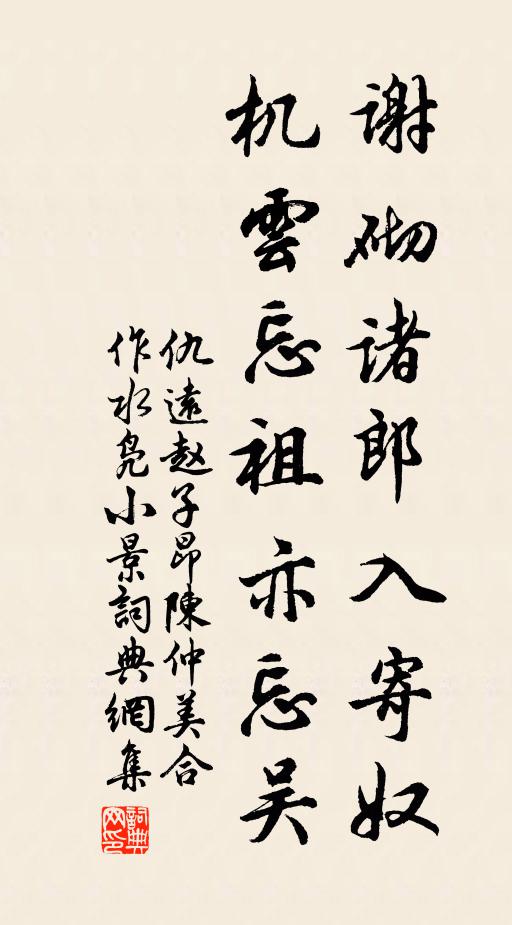 谢砌诸郎入寄奴
机雲忘祖亦忘吴
仇遠赵子昂陳仲美合
作水凫小景詞典網集
詞典网印